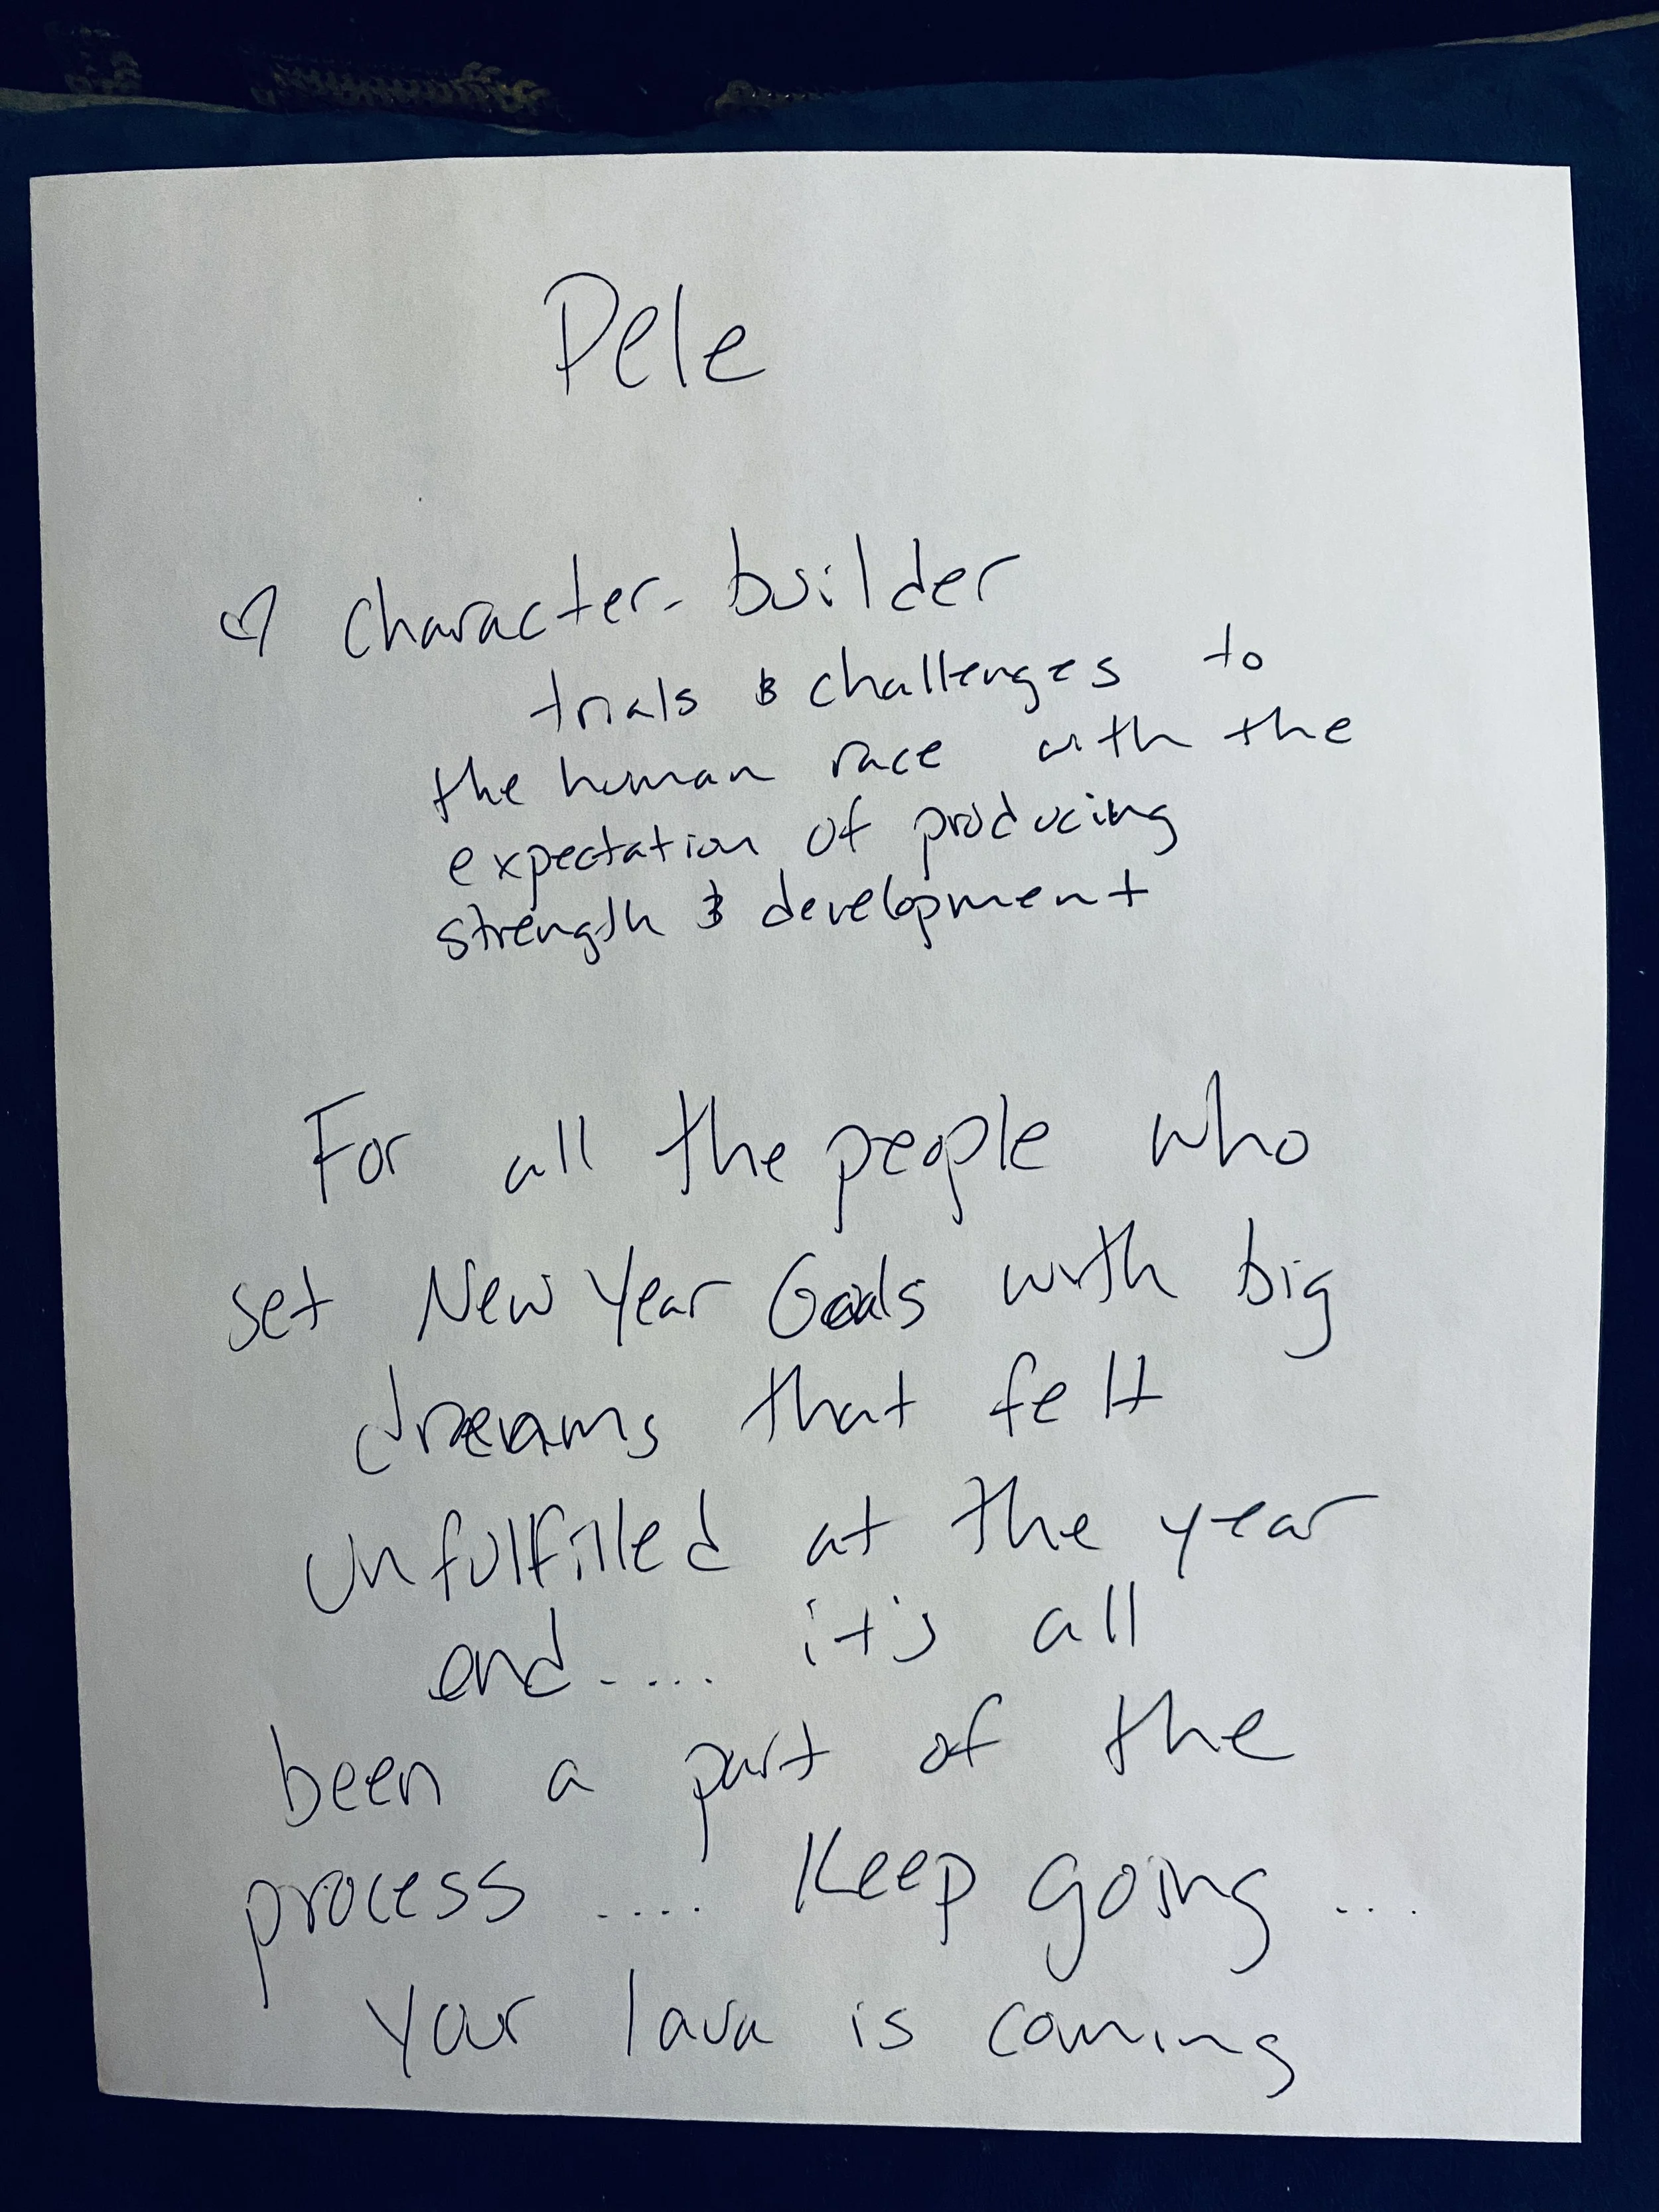 Pele
♡ character-builder
trials & challenges to
the human race with the
expectation of producing
strength & development
For all the people who
set New Year Goals with big
dreams that felt
unfulfilled at the year
end.... it's all
been a part of the
process .... Keep going ...
Your lava is coming